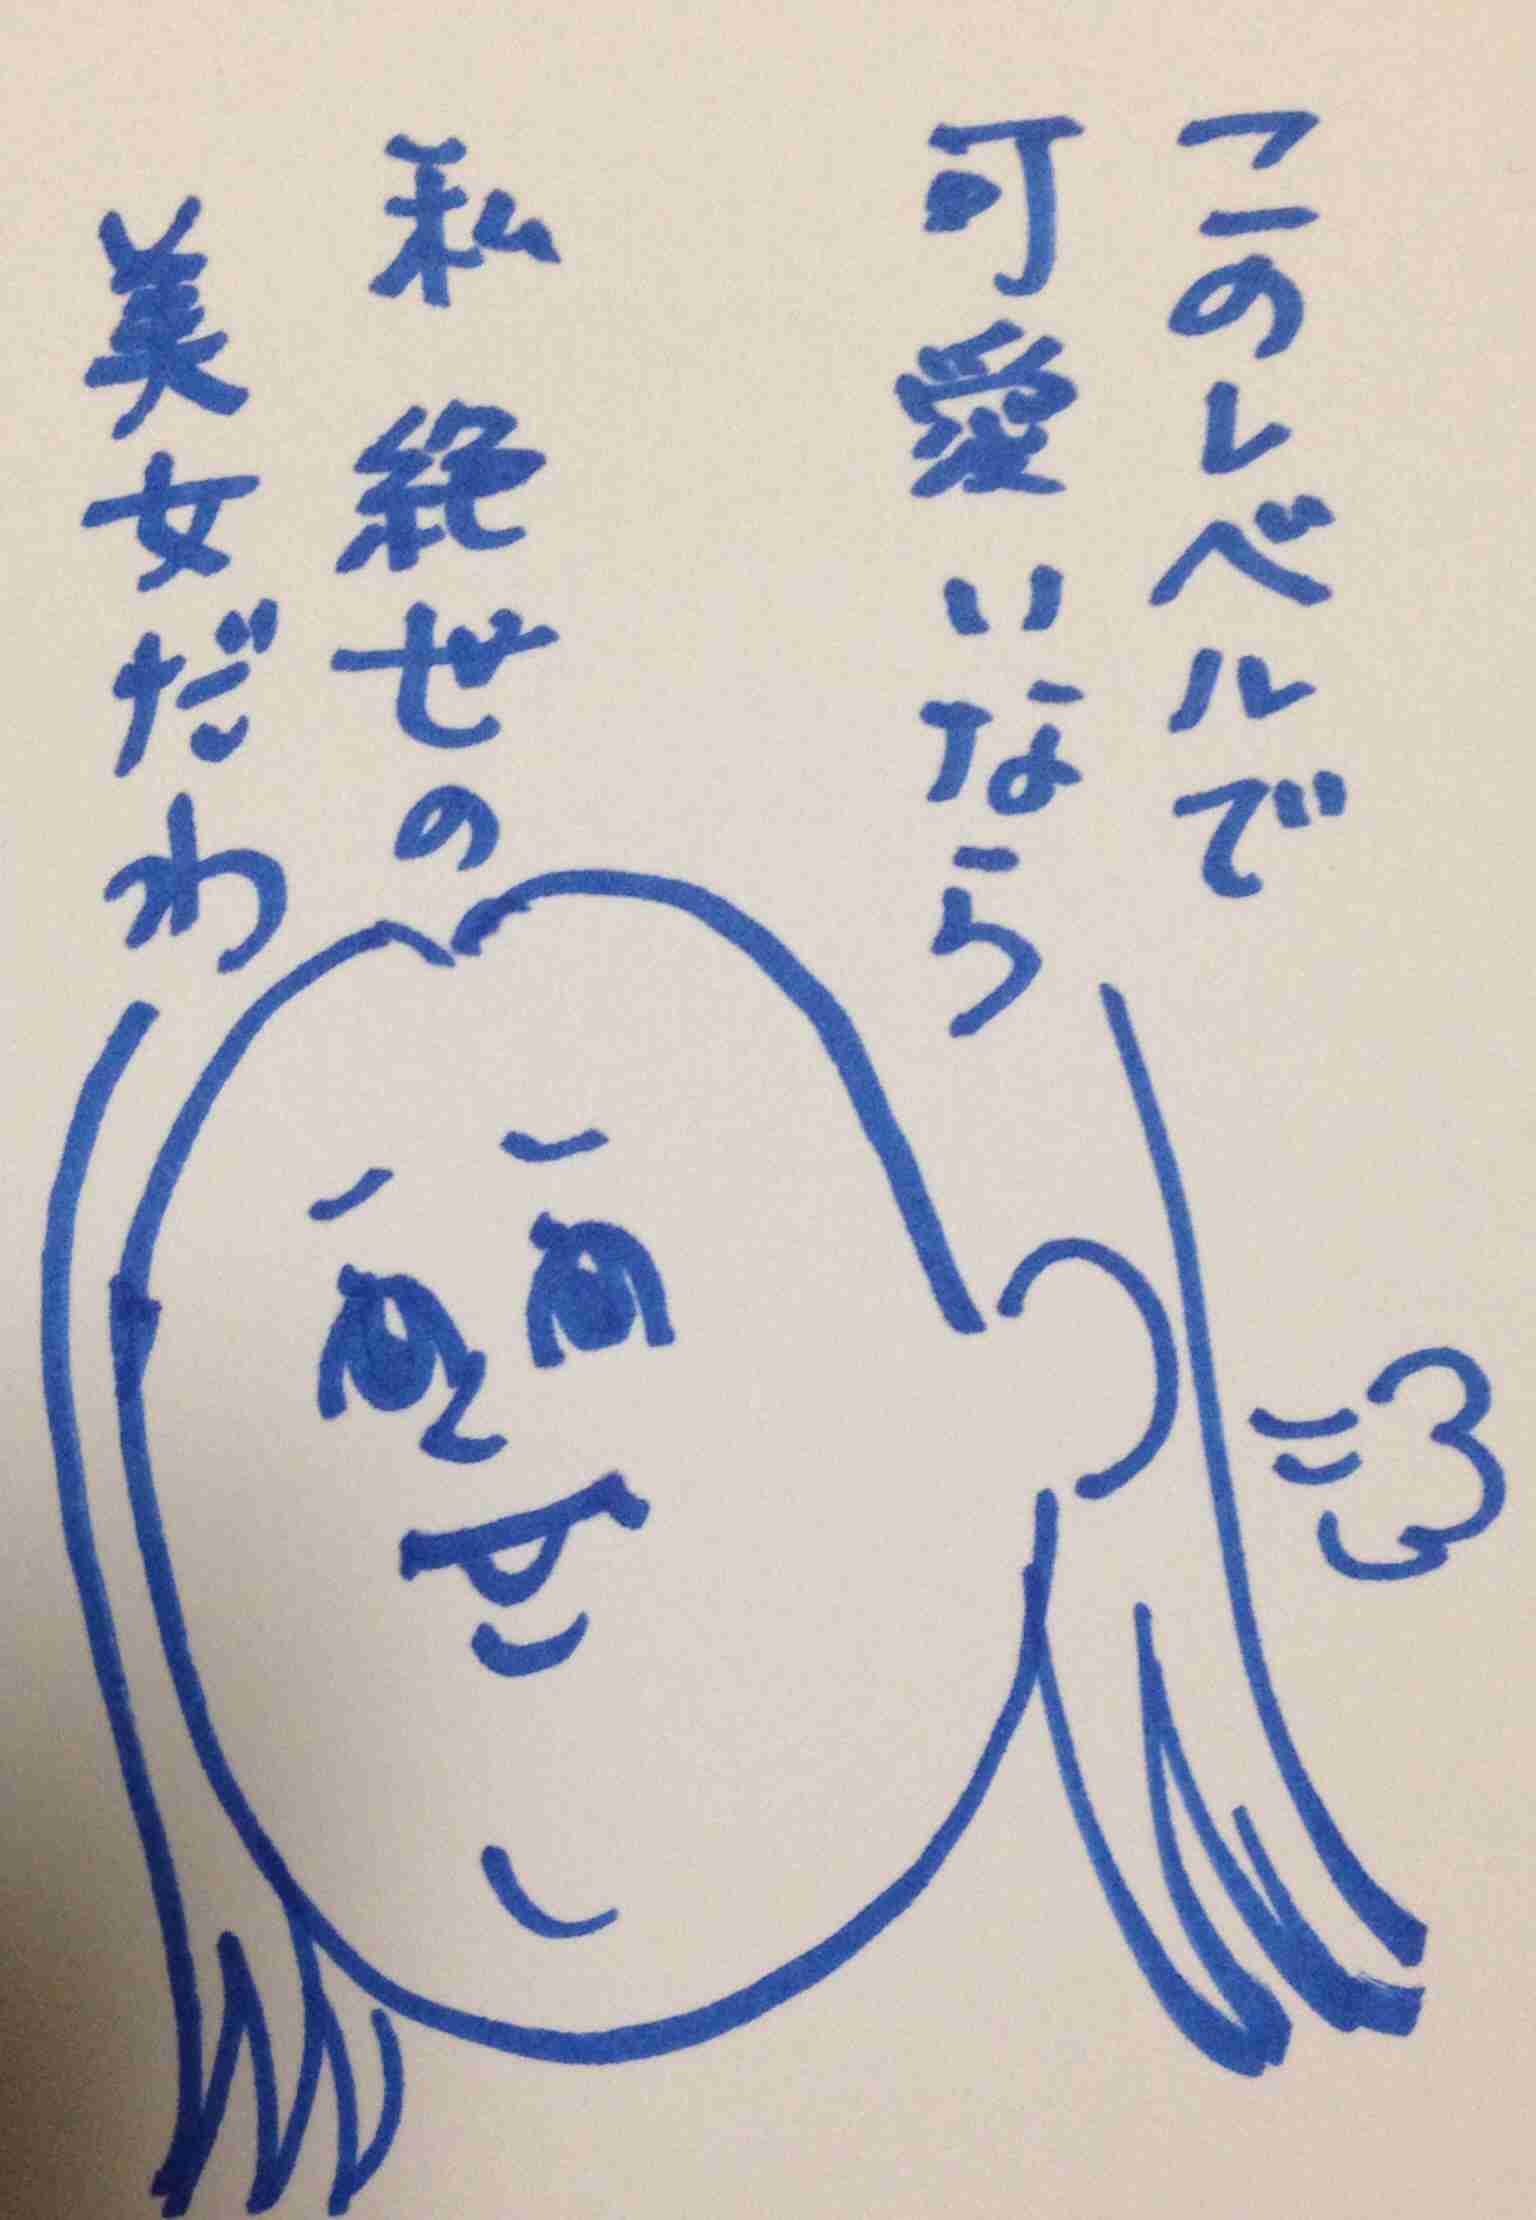 このレベルで
可愛いなら
私絶世の
美女だわ